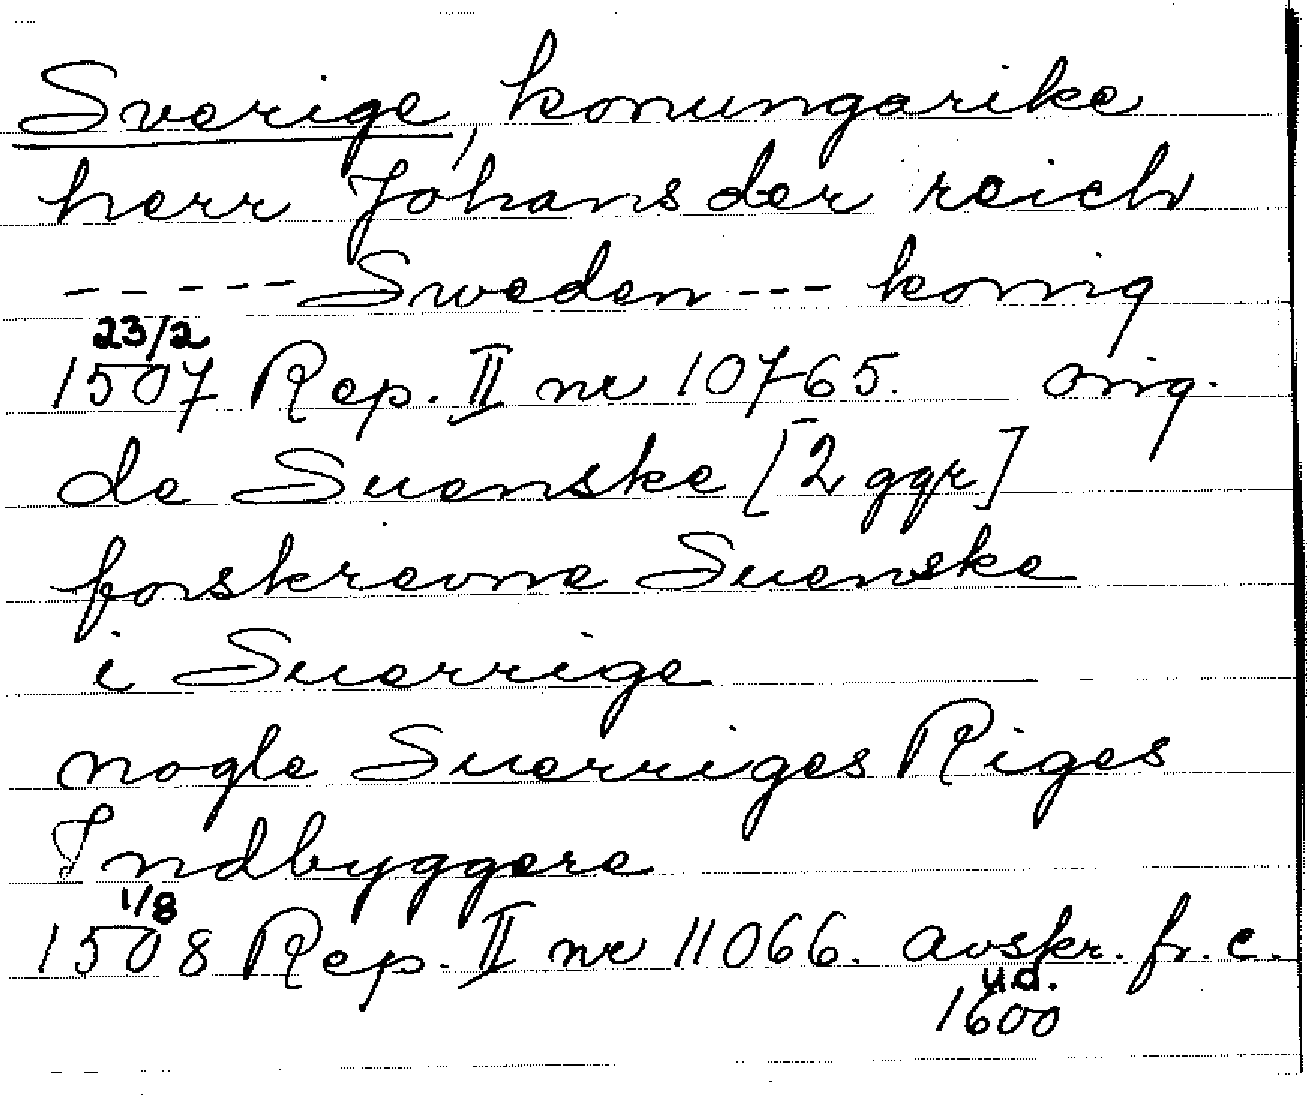 Sverige, konungarike
herr Johans der reich
----- Sweden --- konig
23/2
1507 Rep. II nr 10765. orig.
de Suenske [2 ggr]
forskrevne Suenske
i Suerrige
nogle Suerriges Riges
Indbyggere
1/8
1508 Rep. II nr 11066. avskr. fr. c.
u.d.
1600